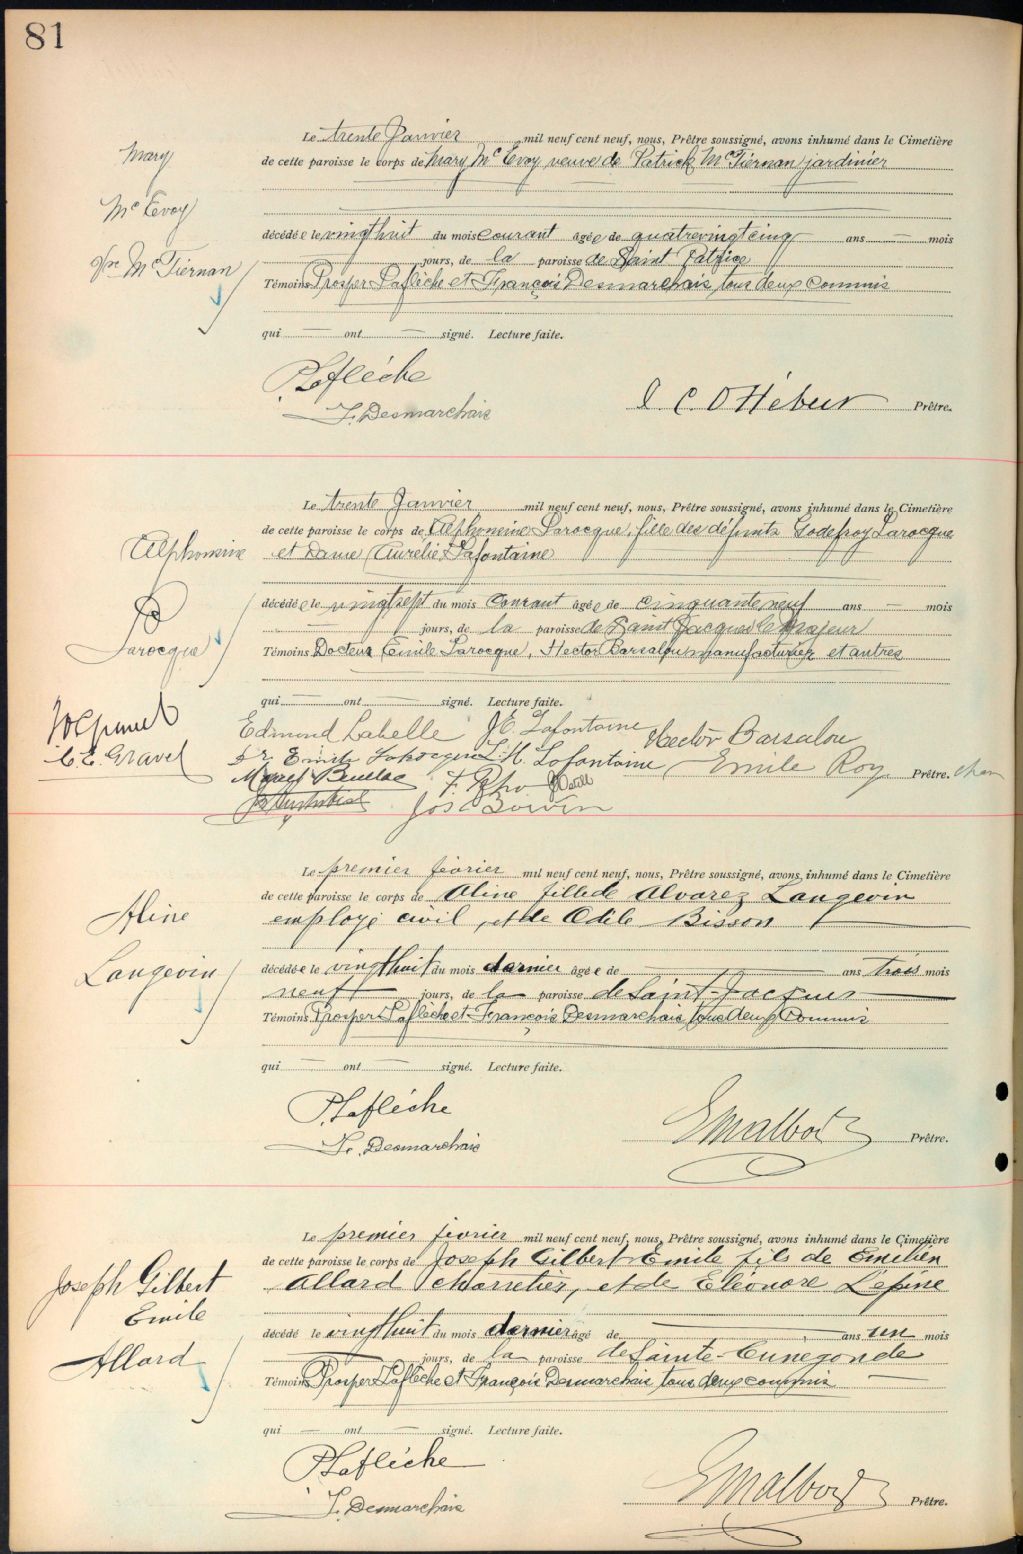 81
Mary
McEvoy
Vve McTiernan
Le trente Janvier mil neuf cent neuf, nous, Prêtre soussigné, avons inhumé dans le Cimetière
de cette paroisse le corps de Mary McEvoy veuve de Patrick McTiernan jardinier
décédée le vingthuit du mois courant âgée de quatrevingtcinq ans — mois
— jours, de la paroisse de Saint Patrice
Témoins Prosper Laflèche et François Desmarchais, tous deux commis
qui — ont — signé. Lecture faite.
P. Laflèche
F. Desmarchais
Hébert Prêtre.
Alphonsine
Larocque
Le trente Janvier mil neuf cent neuf, nous, Prêtre soussigné, avons inhumé dans le Cimetière
de cette paroisse le corps de Alphonsine Larocque, fille des défunts Godefroy Larocque
et Dame Aurélie Lafontaine
décédée le vingtsept du mois courant âgée de cinquanteneuf ans — mois
— jours, de la paroisse de Saint Jacques le Majeur
Témoins Docteur Emile Larocque, Hector Barsalou manufacturier et autres
qui — ont — signé. Lecture faite.
C. E. Gravel
Edmond Labelle J. E. Lafontaine Hector Barsalou
Dr Emile Larocque L. H. Lafontaine Emile Roy Prêtre. chan
Jos Boivin
Aline
Langevin
Le premier février mil neuf cent neuf, nous, Prêtre soussigné, avons inhumé dans le Cimetière
de cette paroisse le corps de Aline fille de Alvarez Langevin
employé civil, et de Odile Bisson
décédée le vingthuit du mois dernier âgée de — ans trois mois
neuf jours, de la paroisse de Saint-Jacques
Témoins Prosper Laflèche et François Desmarchais, tous deux commis
qui — ont — signé. Lecture faite.
P. Laflèche
F. Desmarchais
Prêtre.
Joseph Gilbert
Emile
Allard
Le premier février mil neuf cent neuf, nous, Prêtre soussigné, avons inhumé dans le Cimetière
de cette paroisse le corps de Joseph Gilbert Emile fils de Emilien
Allard charretier, et de Eléonore Lepine
décédé le vingthuit du mois dernier âgé de — ans un mois
— jours, de la paroisse de Sainte-Cunégonde
Témoins Prosper Laflèche et François Desmarchais tous deux commis
qui — ont — signé. Lecture faite.
P. Laflèche
F. Desmarchais
Prêtre.